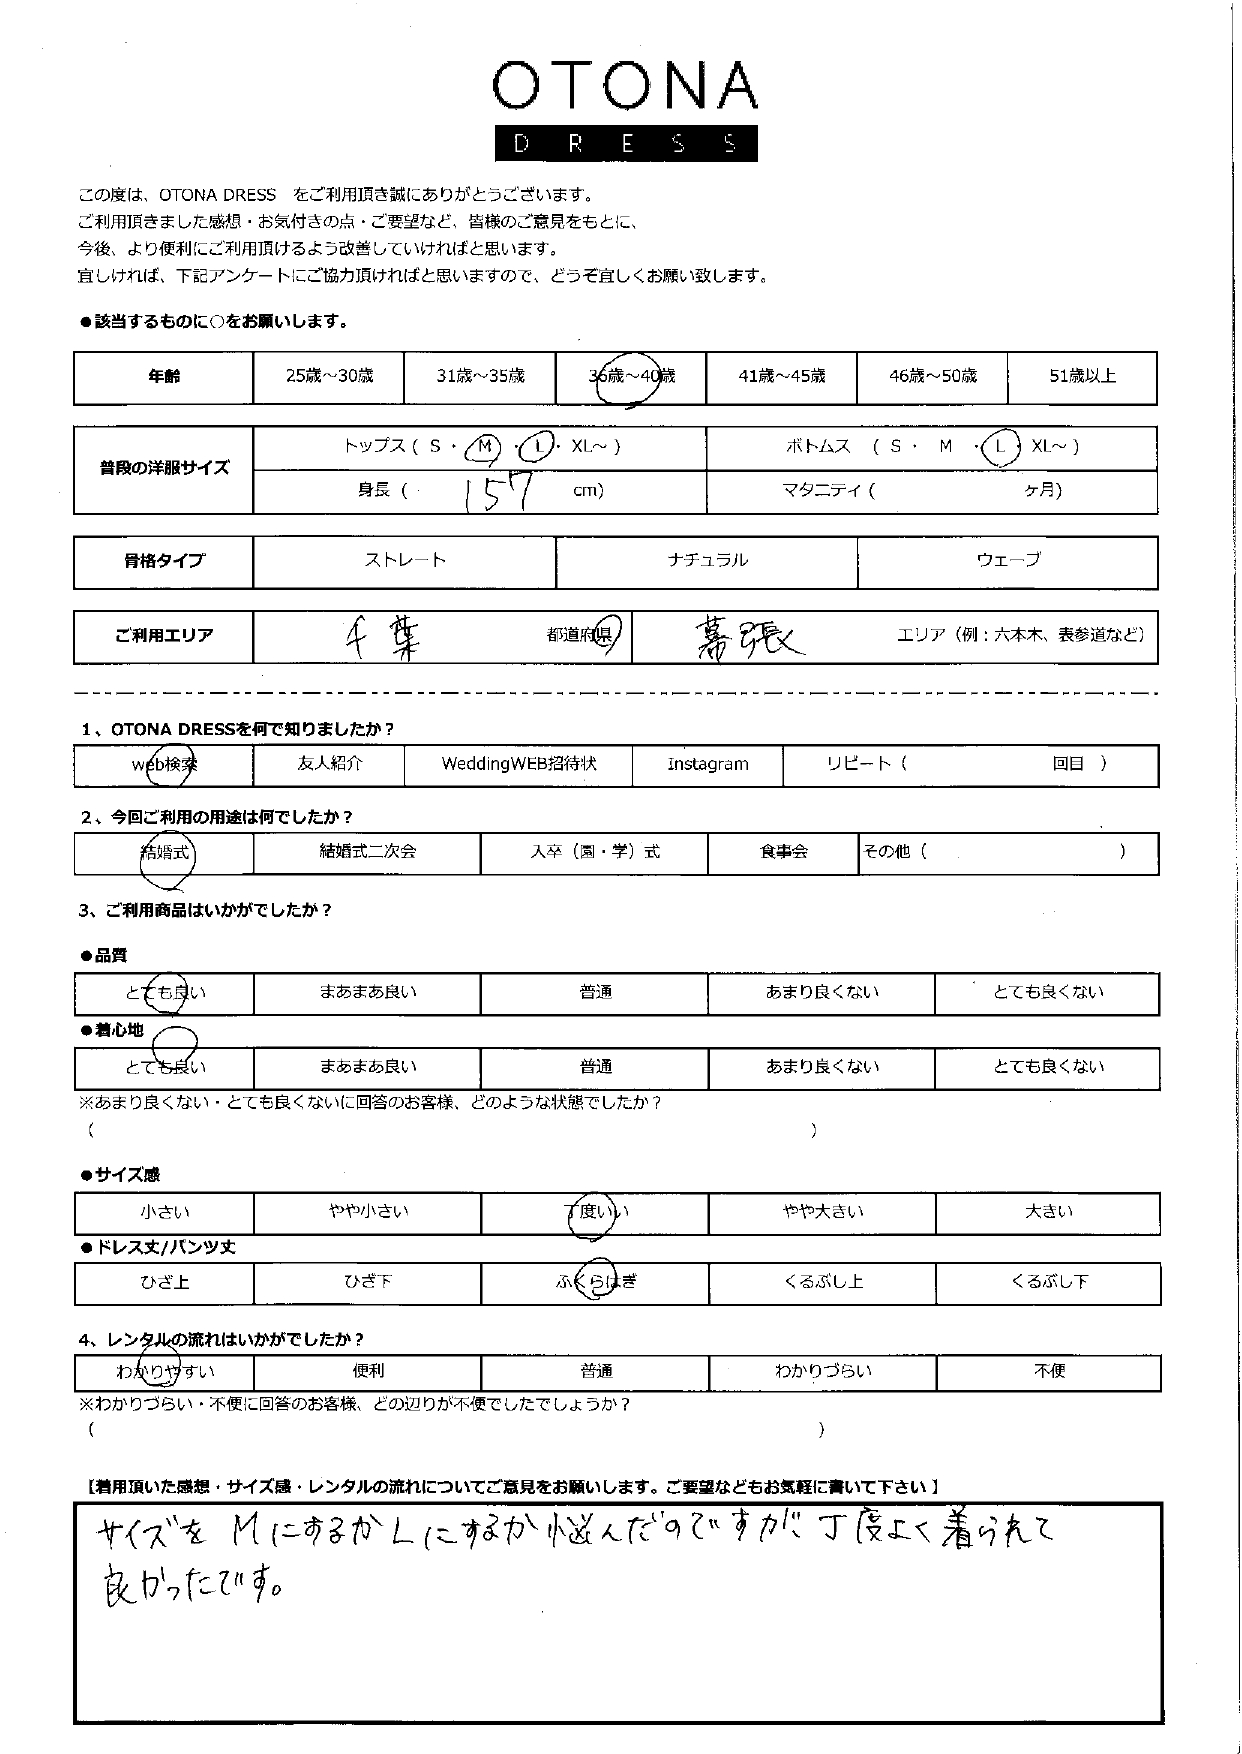 OTONA
DRESS
この度は、OTONA DRESS　をご利用頂き誠にありがとうございます。
ご利用頂きました感想・お気付きの点・ご要望など、皆様のご意見をもとに、
今後、より便利にご利用頂けるよう改善していければと思います。
宜しければ、下記アンケートにご協力頂ければと思いますので、どうぞ宜しくお願い致します。
●該当するものに○をお願いします。
年齢 25歳～30歳 31歳～35歳 36歳～40歳 41歳～45歳 46歳～50歳 51歳以上
普段の洋服サイズ トップス ( S ・ M ・ L ・ XL～ ) ボトムス ( S ・ M ・ L XL～ )
身長 ( 157 cm) マタニティ ( ヶ月)
骨格タイプ ストレート ナチュラル ウェーブ
ご利用エリア 千葉 都道府県 幕張 エリア（例：六本木、表参道など）
1、OTONA DRESSを何で知りましたか？
web検索 友人紹介 WeddingWEB招待状 Instagram リピート（ 回目 ）
2、今回ご利用の用途は何でしたか？
結婚式 結婚式二次会 入卒（園・学）式 食事会 その他（ ）
3、ご利用商品はいかがでしたか？
●品質
とても良い まあまあ良い 普通 あまり良くない とても良くない
●着心地
とても良い まあまあ良い 普通 あまり良くない とても良くない
※あまり良くない・とても良くないに回答のお客様、どのような状態でしたか？
（ ）
●サイズ感
小さい やや小さい 丁度いい やや大きい 大きい
●ドレス丈/パンツ丈
ひざ上 ひざ下 ふくらはぎ くるぶし上 くるぶし下
4、レンタルの流れはいかがでしたか？
わかりやすい 便利 普通 わかりづらい 不便
※わかりづらい・不便に回答のお客様、どの辺りが不便でしたでしょうか？
（ ）
【着用頂いた感想・サイズ感・レンタルの流れについてご意見をお願いします。ご要望などもお気軽に書いて下さい】
サイズを MにするかLにするか悩んだのですが、丁度よく着られて
良かったです。